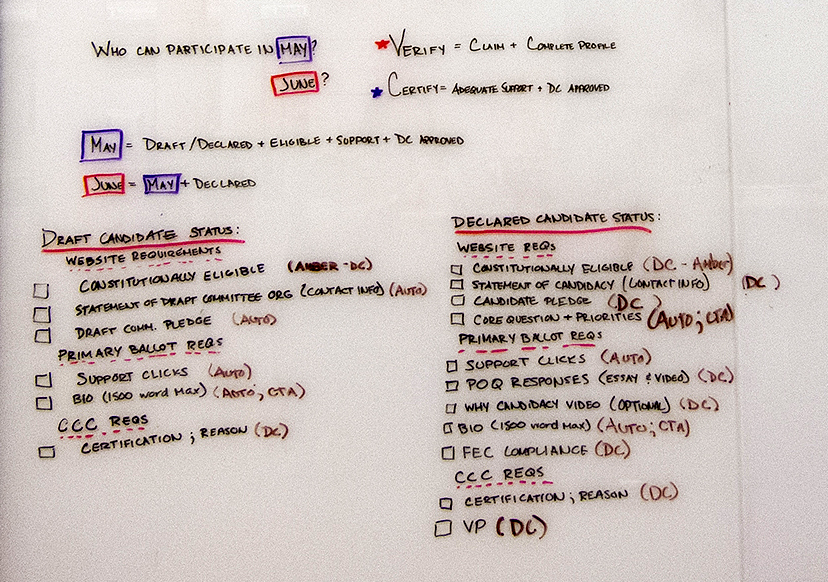 WHO CAN PARTICIPATE IN MAY?
JUNE?
★ VERIFY = CLAIM + COMPLETE PROFILE
★ CERTIFY = ADEQUATE SUPPORT + DC APPROVED
MAY = DRAFT/DECLARED + ELIGIBLE + SUPPORT + DC APPROVED
JUNE = MAY + DECLARED
DRAFT CANDIDATE STATUS:
WEBSITE REQUIREMENTS
CONSTITUTIONALLY ELIGIBLE (AMBER-DC)
STATEMENT OF DRAFT COMMITTEE ORG (CONTACT INFO) (AUTO)
DRAFT COMM. PLEDGE (AUTO)
PRIMARY BALLOT REQS
SUPPORT CLICKS (AUTO)
BIO (1500 word Max) (AUTO; CTA)
CCC REQS
CERTIFICATION; REASON (DC)
DECLARED CANDIDATE STATUS:
WEBSITE REQs
CONSTITUTIONALLY ELIGIBLE (DC - Amber)
STATEMENT OF CANDIDACY (CONTACT INFO) (DC)
CANDIDATE PLEDGE (DC)
CORE QUESTION + PRIORITIES (AUTO; CTA)
PRIMARY BALLOT REQS
SUPPORT CLICKS (AUTO)
POQ RESPONSES (ESSAY & VIDEO) (DC)
WHY CANDIDACY VIDEO (OPTIONAL) (DC)
BIO (1500 word MAX) (AUTO; CTA)
FEC COMPLIANCE (DC)
CCC REQS
CERTIFICATION; REASON (DC)
VP (DC)